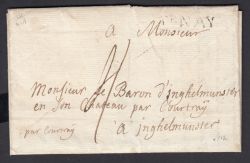 a Monsieur
Monsieur le Baron d'inghelmunster
en son chateau par Courtray
par Courtray a inghelmunster